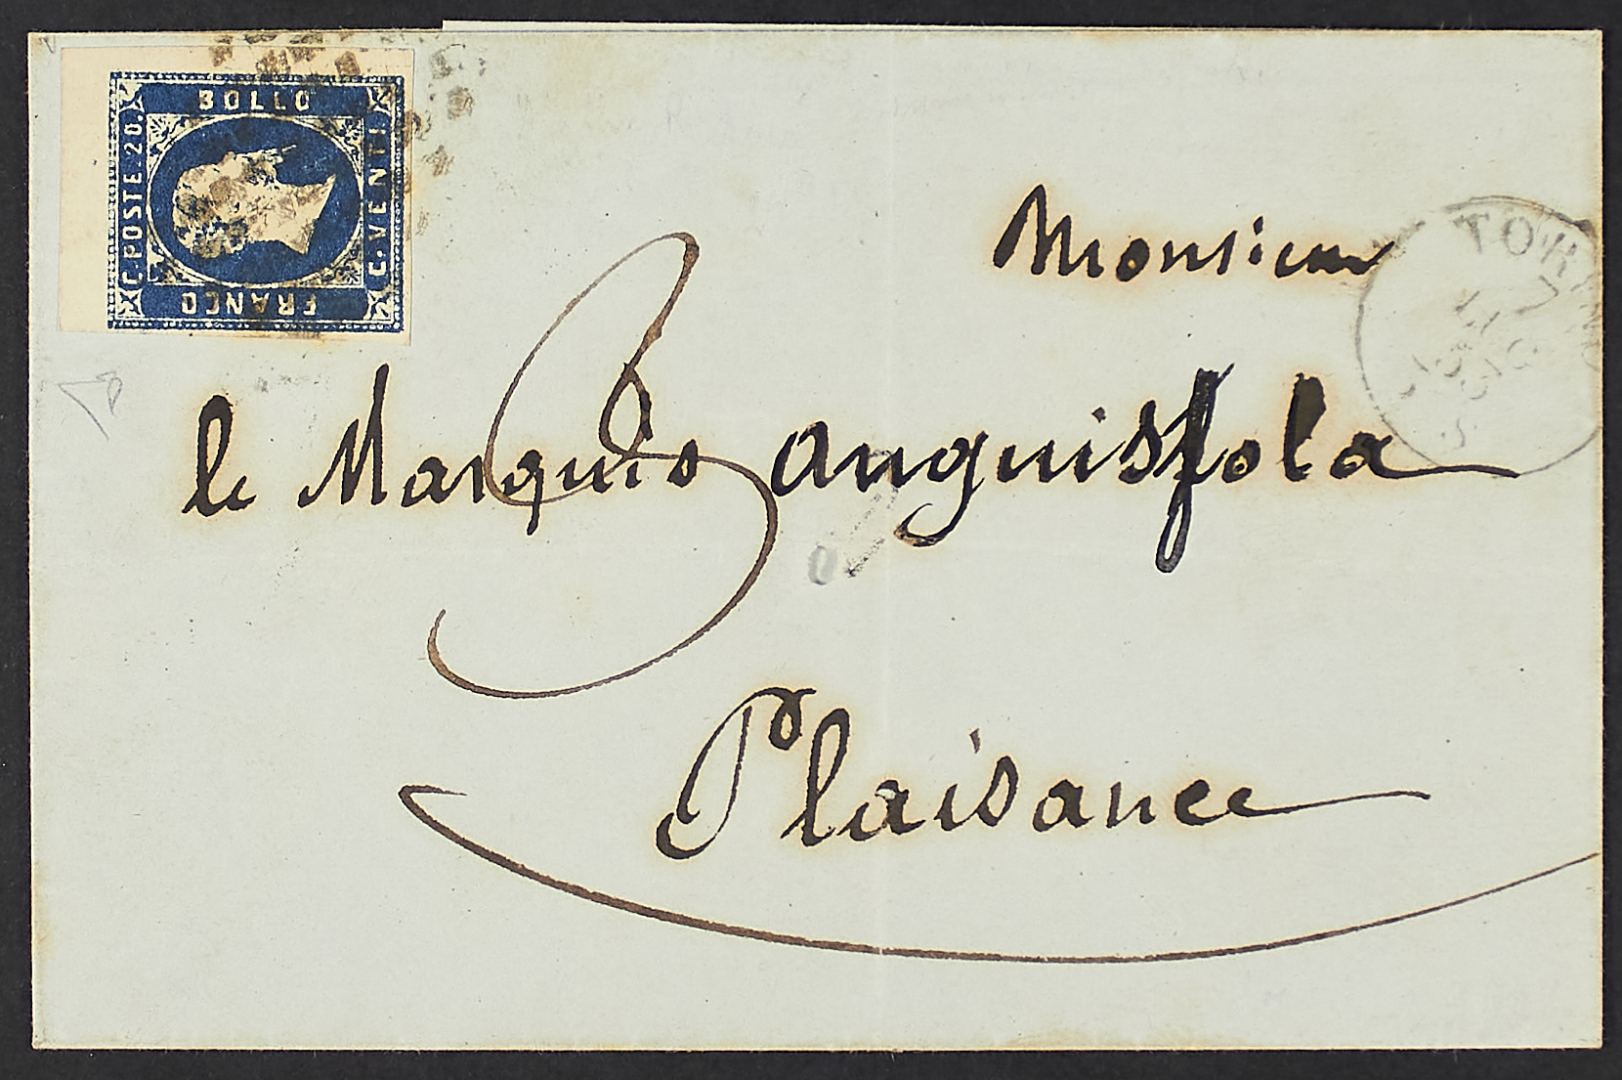 BOLLO
C. POSTE 20.
C. VENTI
FRANCO
TORINO
Monsieur
le Marquis Anguisfola
3
Plaisance